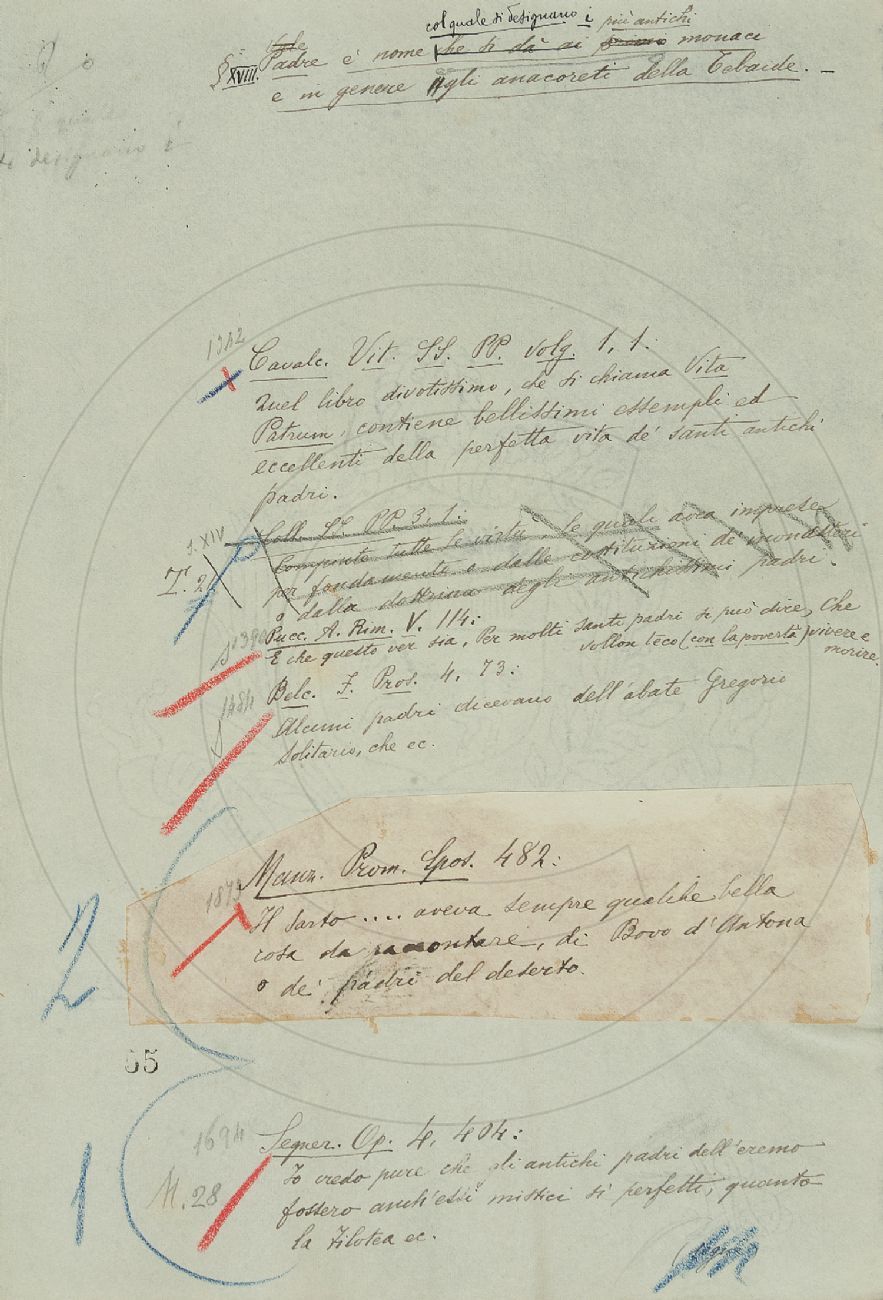 col quale si designano i più antichi
§ XVIII. Padre è nome che si dà ai primi monaci
e in genere gli anacoreti della Tebaide. –
designano i
1342
Cavalc. Vit. SS. PP. volg. 1, 1:
Quel libro divotissimo, che si chiama Vita
Patrum, contiene bellissimi essempli ed
eccellenti della perfetta vita de' santi antichi
padri.
S. XIV
Coll. SS. PP. 3, 1:
T. 2
Compiute tutte le virtù, le quali avea imprese
per fondamento o dalle costituzioni de' monasteri
o dalla dottrina degli antichissimi padri.
Pucc. A. Rim. V. 114:
E che questo ver sia, Per molti santi padri si può dire, Che
vollon teco (con la povertà) vivere e
morire.
1484
Belc. F. Pros. 4, 73:
Alcuni padri dicevano dell'abate Gregorio
solitario, che ec.
Manz. Prom. Spos. 482:
Il sarto .... aveva sempre qualche bella
cosa da raccontare, di Bovo d'Antona
o de' padri del deserto.
2
65
1694
Segner. Op. 4, 404:
1
M. 28
Io credo pure che gli antichi padri dell'eremo
fossero anch'essi mistici sì perfetti, quanto
la Filotea ec.